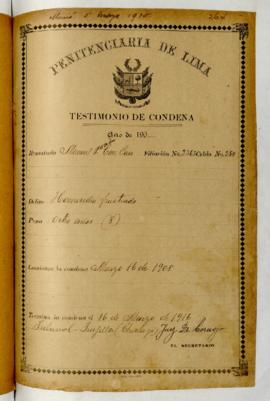 5 marzo 1910
264
PENITENCIARIA DE LIMA
TESTIMONIO DE CONDENA
Año de 190
Rematado Filiación No. 2363 Celda No. 250
Delito Homicidio frustrado
Pena Ocho años (8)
Comienza la condena Marzo 16 de 1908
Termina la condena el 16 de Marzo de 1916
Tribunal Trujillo
EL SECRETARIO